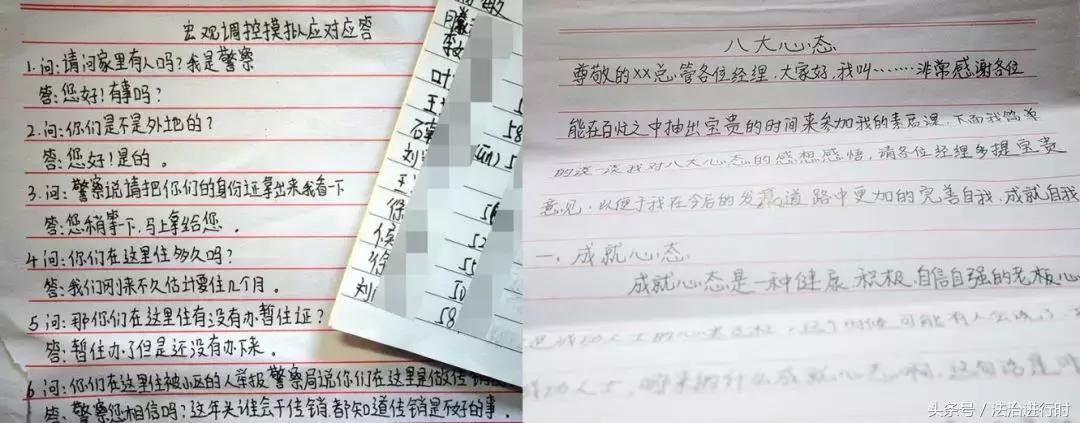 宏观调控摸拟应对应答
1.问:请问家里有人吗?我是警察
答:您好!有事吗?
2.问:你们是不是外地的?
答:您好!是的。
3.问:警察说请把你们的身份证拿出来我看一下
答:您稍等一下,马上拿给您。
4问:你们在这里住多久吗?
答:我们刚来不久估计要住几个月。
5问:那你们在这里住有没有办暂住证?
答:暂住办了但是还没有办下来。
6问:你们在这里住被小区的人举报警察局说你们在这里是做传销
答:警察您相信吗?这年头谁会干传销都知道传销是不好的事。
敏
叶
王
石
刘
王
徐
侯
徐
刘
58
52
55
58
八大心态
尊敬的XX总,管各位经理,大家好,我叫……非常感谢各位
能在百忙之中抽出宝贵的时间来参加我的素质课,下面我简单
的谈一谈我对八大心态的感想感悟,请各位经理多提宝贵
意见,以便于我在今后的发展道路中更加的完善自我,成就自我
一、成就心态
成就心态是一种健康 积极 自信自强的老板心
头条号/法治进行时